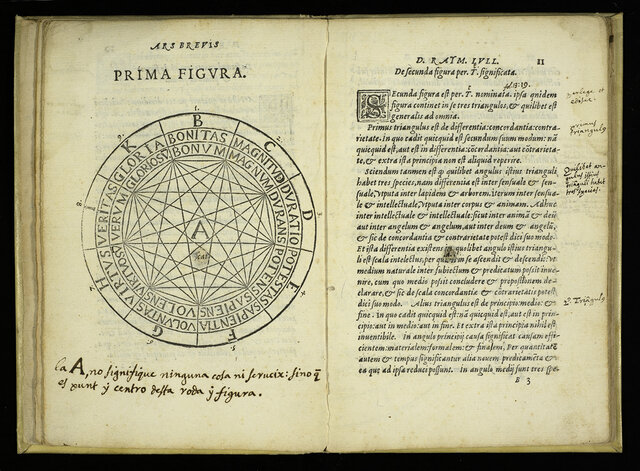 ARS BREVIS
PRIMA FIGVRA.
B
C
D
E
F
G
H
I
K
BONITAS
MAGNITVD
DVRATIO
POTESTAS
SAPIENTIA
VOLVNTAS
VIRTVS
VERITAS
GLORIA
BONVM
MAGNVM
DVRANS
POTENS
SAPIENS
VOLENS
VERVM
GLORIOSV
A
la A, no significa ninguna cosa ni serucix: sino q̃
es punt y centro desta roda y figura.
D. RAYM. LVLL. 11
De secunda figura per. T. significata.
SEcunda figura est per. T. nominata. ipsa quidem
figura continet in se tres triangulus, & quilibet est
generalis ad omnia.
Primus triangulus est de differentia: concordantia: contra-
rietate. In quo cadit quicquid est secundum suum modum: nã
quicquid est, aut est in differentia: cõcordantia: aut cõtrarieta-
te, & extra ista principia non est aliquid reperire.
Sciendum tanmen est q̃ quilibet angulus istius trianguli
habet tres species, nam differentia est inter sensuale & sen-
suale, vt puta inter lapidem & arborem. Iterum inter sensua-
le & intellectuale, vt puta inter corpus & animam. Adhuc
inter intellectuale & intellectuale: sicut inter animã & deũ
aut inter angelum & angelum, aut inter deum & angelũ,
& sic de concordantia & contrarietate potest dici suo modo.
Et ista differentia existens in quolibet angulo istius triangu-
li est scala intellectus, per quam ipse ascendit & descendit: vt
medium naturale inter subiectum & predicatum possit inue-
nire, cum quo medio possit concludere & propositionem de-
clarare, & sic de scala concordantiæ & contrarietatis potest
dici suo modo. Alius triangulus est de principio: medio: &
fine. in quo cadit quicquid est: nã quicquid est, aut est in prin-
cipio: aut in medio: aut in fine. Et extra ista principia nihil est
inuentibile. In angulo principij causa significat causam effi-
cientem: materialem: formalem: & finalem. Per quantitatẽ
autem & tempus significantur alia nouem predicamẽta &
ea que ad ipsa reduci possunt. in angulo medij sunt tres spe-
B 3
primus
triangulus
Quilibet an-
gulus istius
trianguli habet
tres species.
2. Triangulus